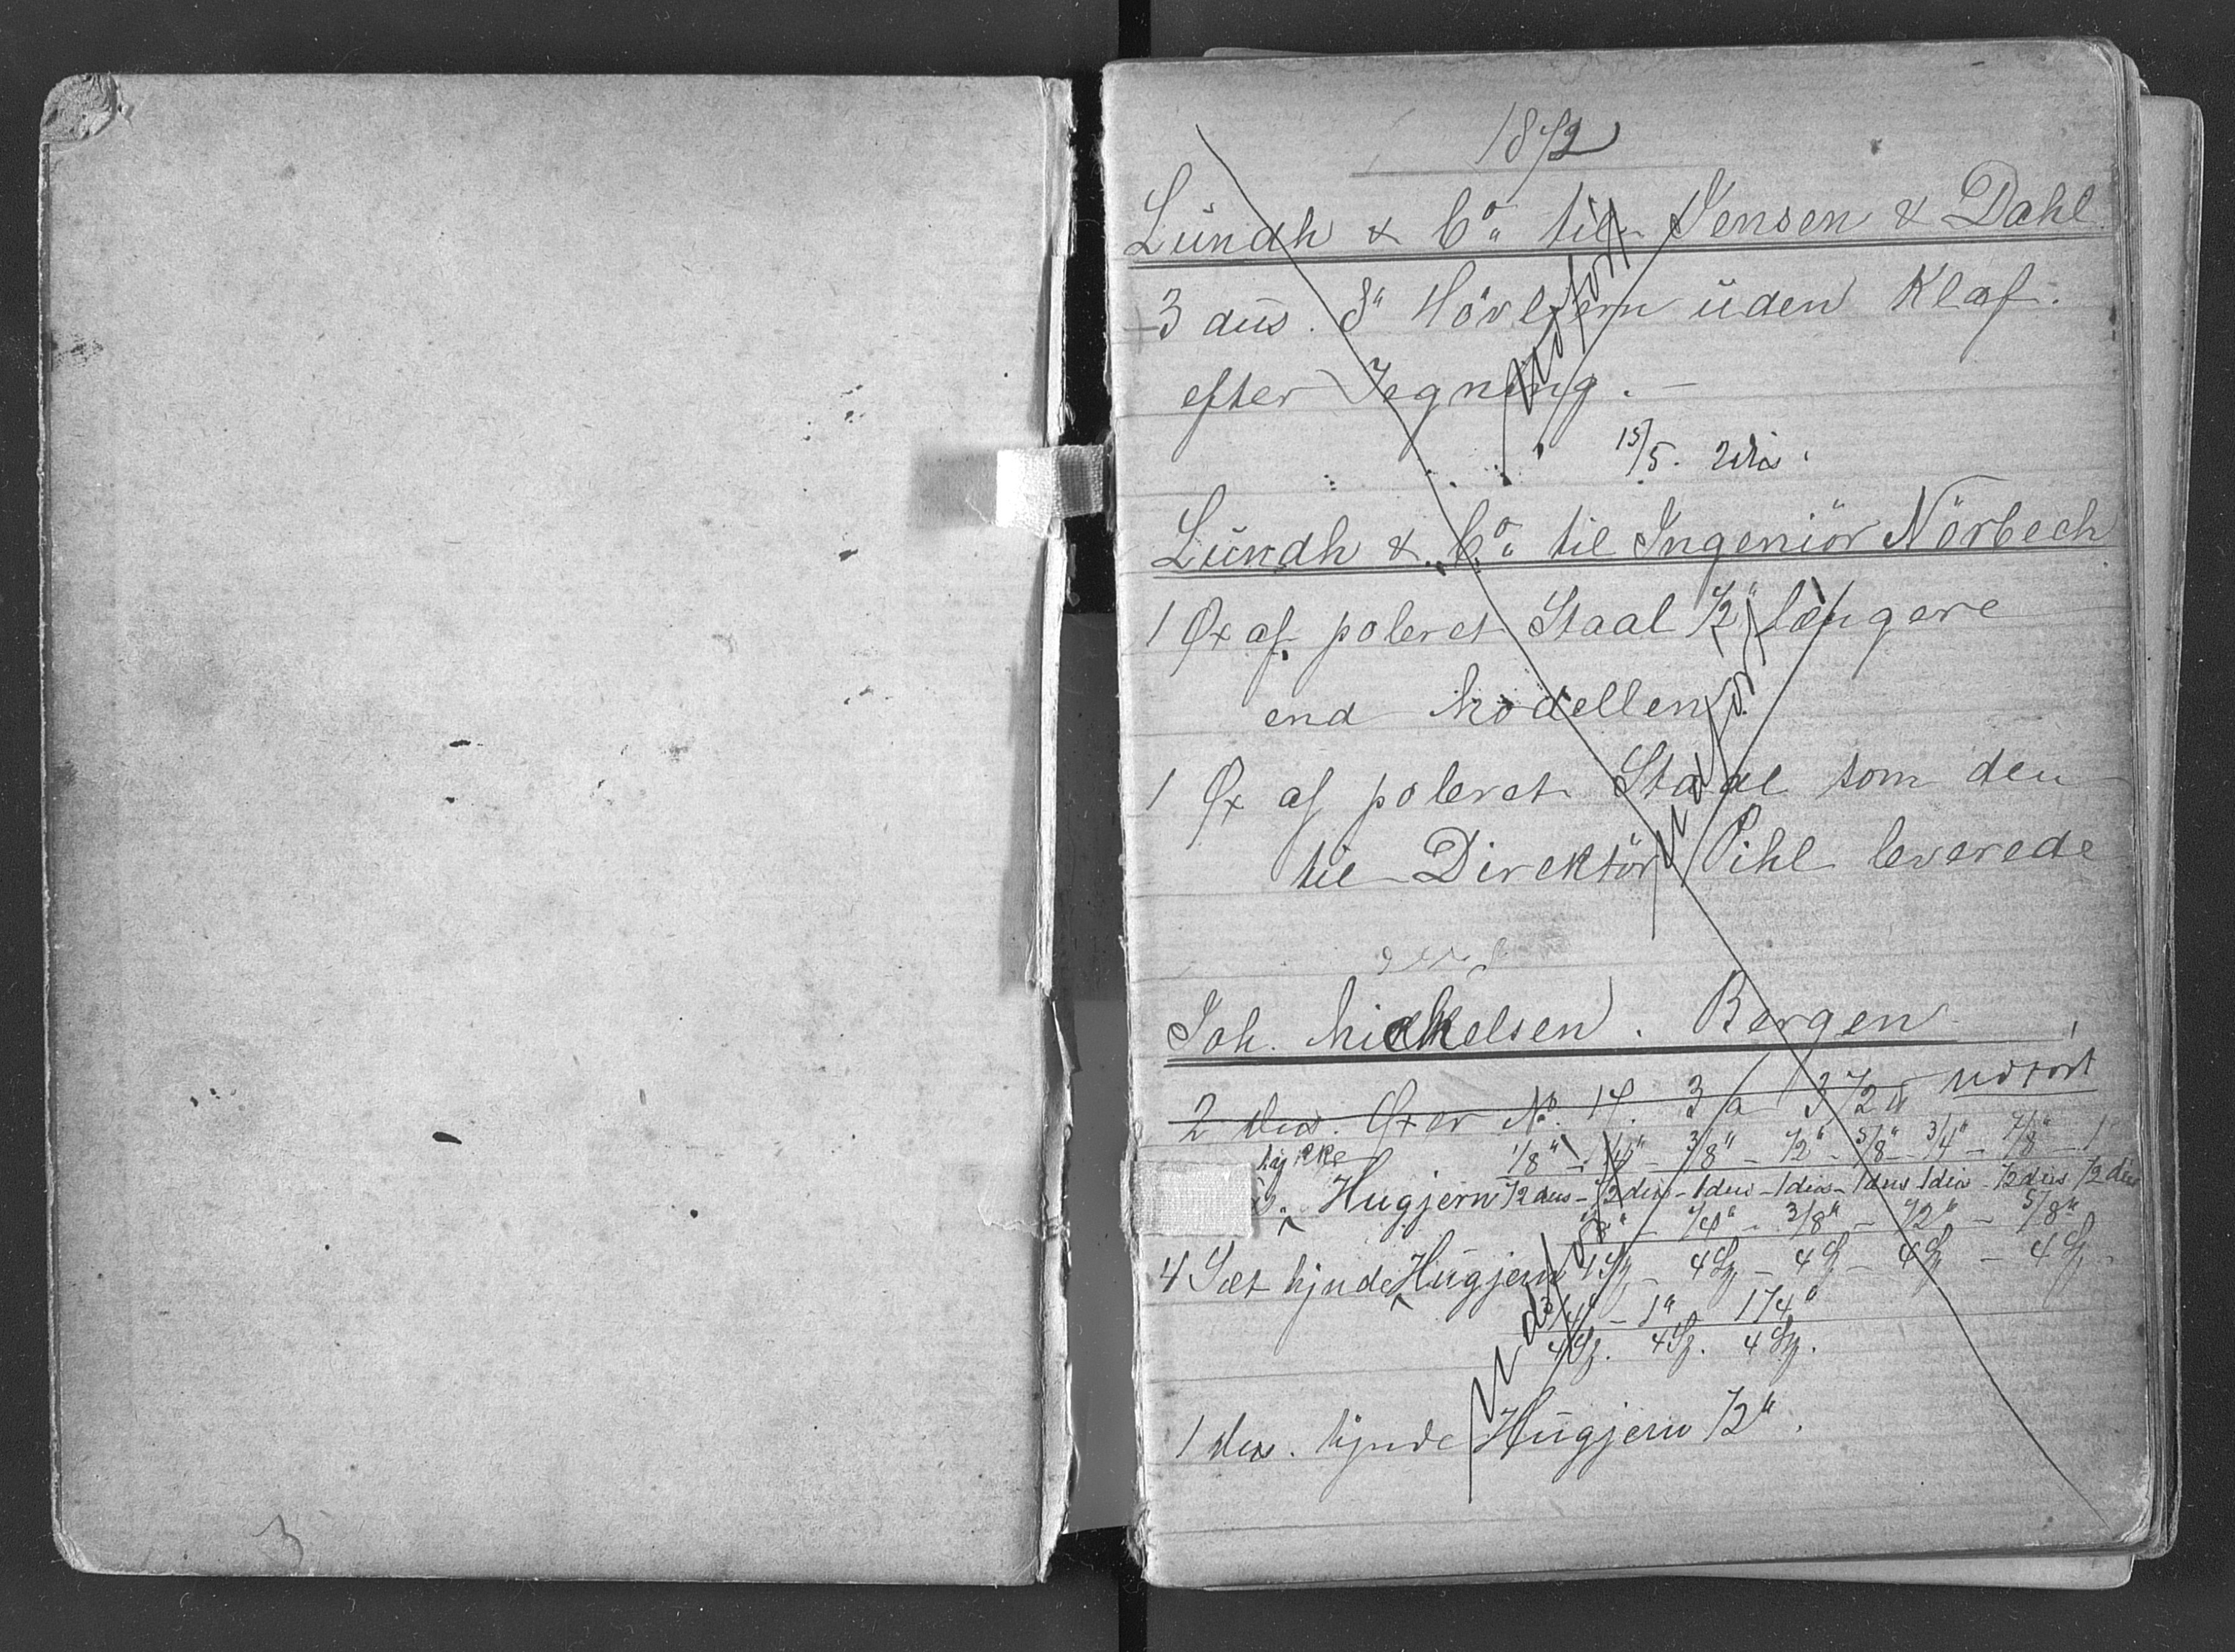 1872
Lündh & Co. til Jensen & Dahl
3 düs. 8" Hövljern üden Klaf.
efter Tegning.
Udfört
15/5. 2 düs.
Lündh & Co. til Ingeniör Nörbech
1 Øx af poleret Staal 1/2" længere
end Modellen
1 Øx af poleret Staal som den
til Direktör Pihl leverede
Udfört
Joh. Mickelsen. Bergen
2 dus. Øxer No. 14. 3 a 3 1/2 udfört
tykke 1/8" - 1/4" - 3/8" - 1/2" - 5/8" - 3/4" - 7/8" - 1"
Hugjern 1/2 dus - 1/2 dus - 1 dus - 1 dus - 1 dus 1 dus - 1/2 dus 1/2 dus
1/8" - 1/4" - 3/8" - 1/2" - 5/8"
4 Sæt tynde Hügjern 4 St - 4 St - 4 St - 4 St - 4 St
3/4" - 1" 1 1/4"
4 St. 4 St. 4 St.
Udfört
1 dus. tynde Hügjern 1/2".